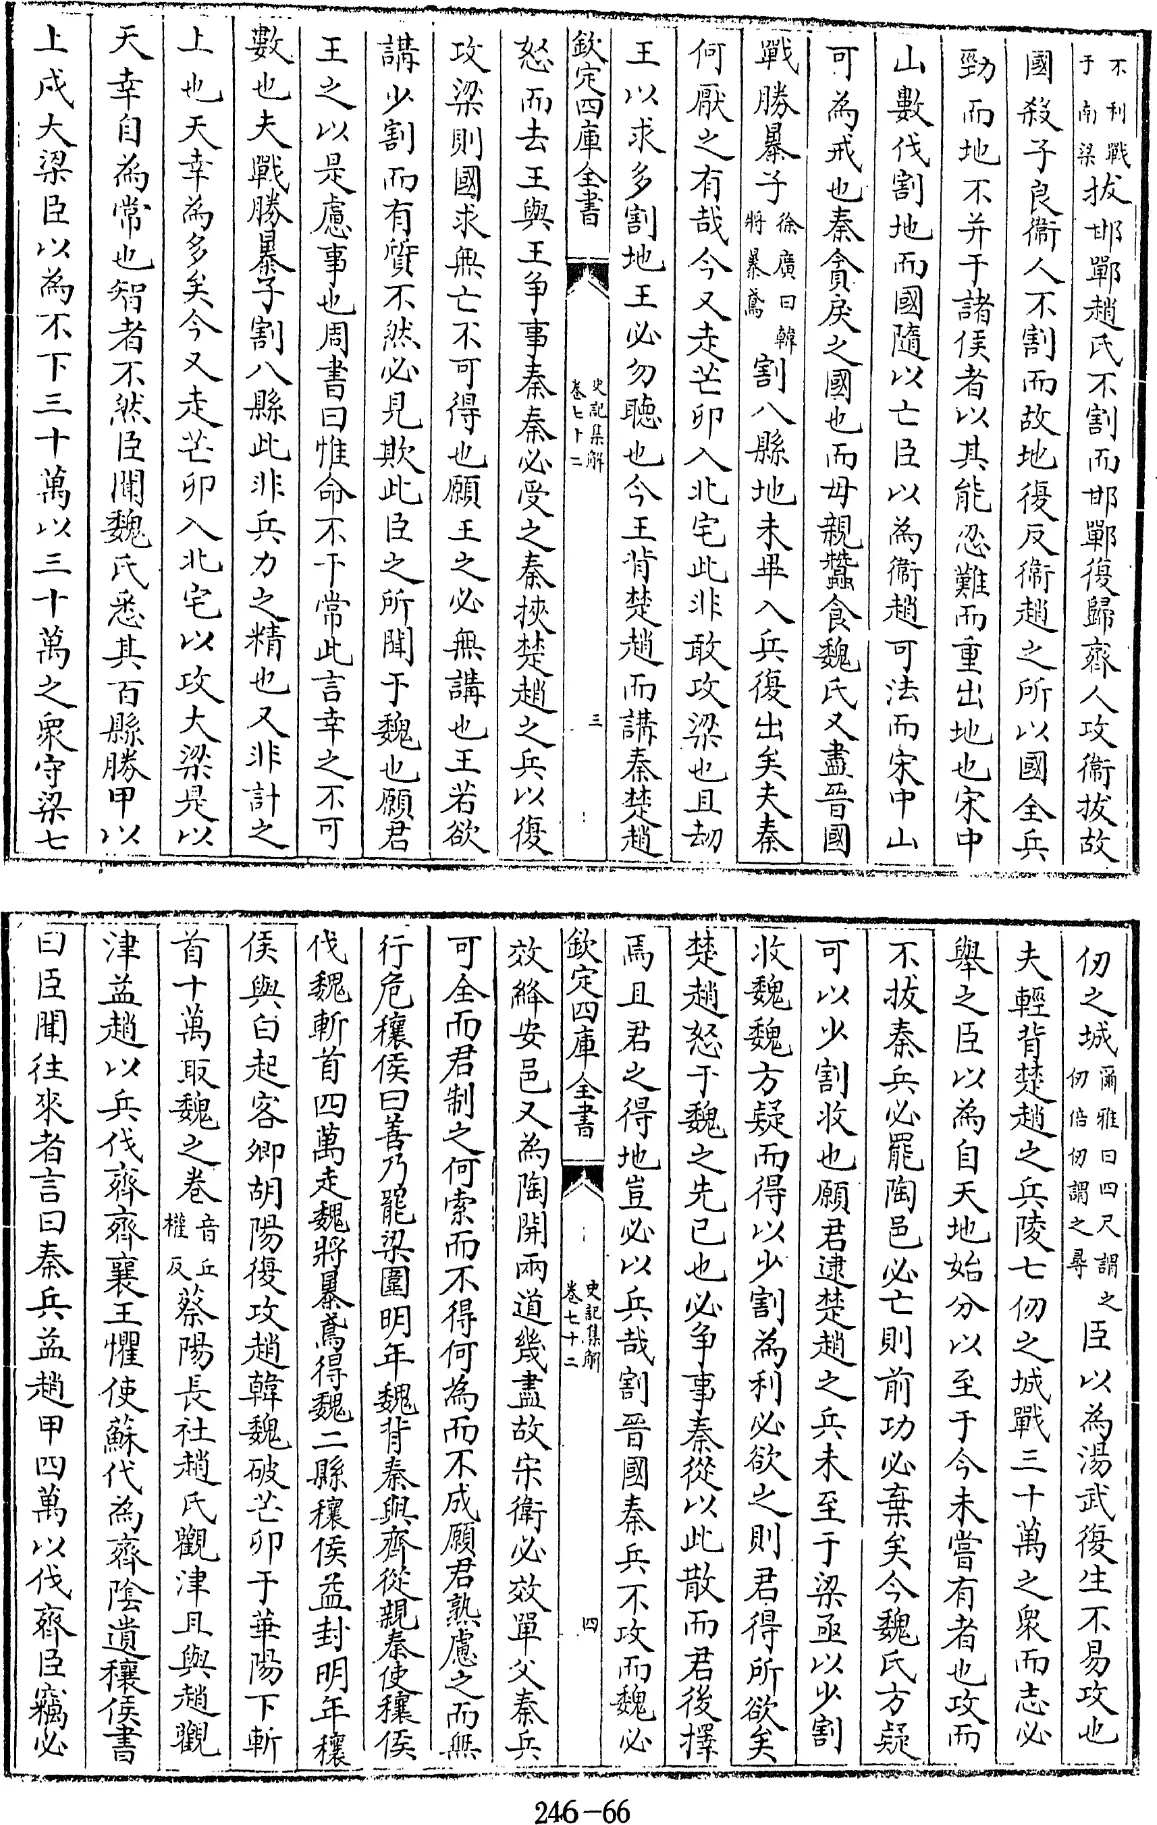 不利戰于南梁拔邯鄲趙氏不割而邯鄲復歸齊人攻衞拔故
國殺子良衞人不割而故地復反衞趙之所以國全兵
勁而地不并于諸侯者以其能忍難而重出地也宋中
山數伐割地而國隨以亡臣以為衞趙可法而宋中山
可為戒也秦貪戾之國也而毋親蠶食魏氏又盡晉國
戰勝暴子徐廣曰韓將暴鳶割八縣地未畢入兵復出矣夫秦
何厭之有哉今又走芒卯入北宅此非敢攻梁也且劫
王以求多割地王必勿聽也今王背楚趙而講秦楚趙
欽定四庫全書 史記集解卷七十二 三
怒而去王與王争事秦秦必受之秦挾楚趙之兵以復
攻梁則國求無亡不可得也願王之必無講也王若欲
講少割而有質不然必見欺此臣之所聞于魏也願君
王之以是慮事也周書曰惟命不于常此言幸之不可
數也夫戰勝暴子割八縣此非兵力之精也又非計之
上也天幸為多矣今又走芒卯入北宅以攻大梁是以
天幸自為常也智者不然臣聞魏氏悉其百縣勝甲以
上戍大梁臣以為不下三十萬以三十萬之衆守梁七
仞之城爾雅曰四尺謂之仞倍仞謂之尋臣以為湯武復生不易攻也
夫輕背楚趙之兵陵七仞之城戰三十萬之衆而志必
舉之臣以為自天地始分以至于今未嘗有者也攻而
不拔秦兵必罷陶邑必亡則前功必棄矣今魏氏方疑
可以少割收也願君逮楚趙之兵未至于梁亟以少割
收魏魏方疑而得以少割為利必欲之則君得所欲矣
楚趙怒于魏之先己也必争事秦從以此散而君後擇
焉且君之得地豈必以兵哉割晉國秦兵不攻而魏必
欽定四庫全書 史記集解卷七十二 四
效絳安邑又為陶開兩道幾盡故宋衛必效單父秦兵
可全而君制之何索而不得何為而不成願君熟慮之而無
行危穰侯曰善乃罷梁圍明年魏背秦與齊從親秦使穰侯
伐魏斬首四萬走魏將暴鳶得魏二縣穰侯益封明年穰
侯與白起客卿胡陽復攻趙韓魏破芒卯于華陽下斬
首十萬取魏之卷音丘權反蔡陽長社趙氏觀津且與趙觀
津益趙以兵伐齊齊襄王懼使蘇代為齊陰遺穰侯書
曰臣聞往來者言曰秦兵益趙甲四萬以伐齊臣竊必
246-66